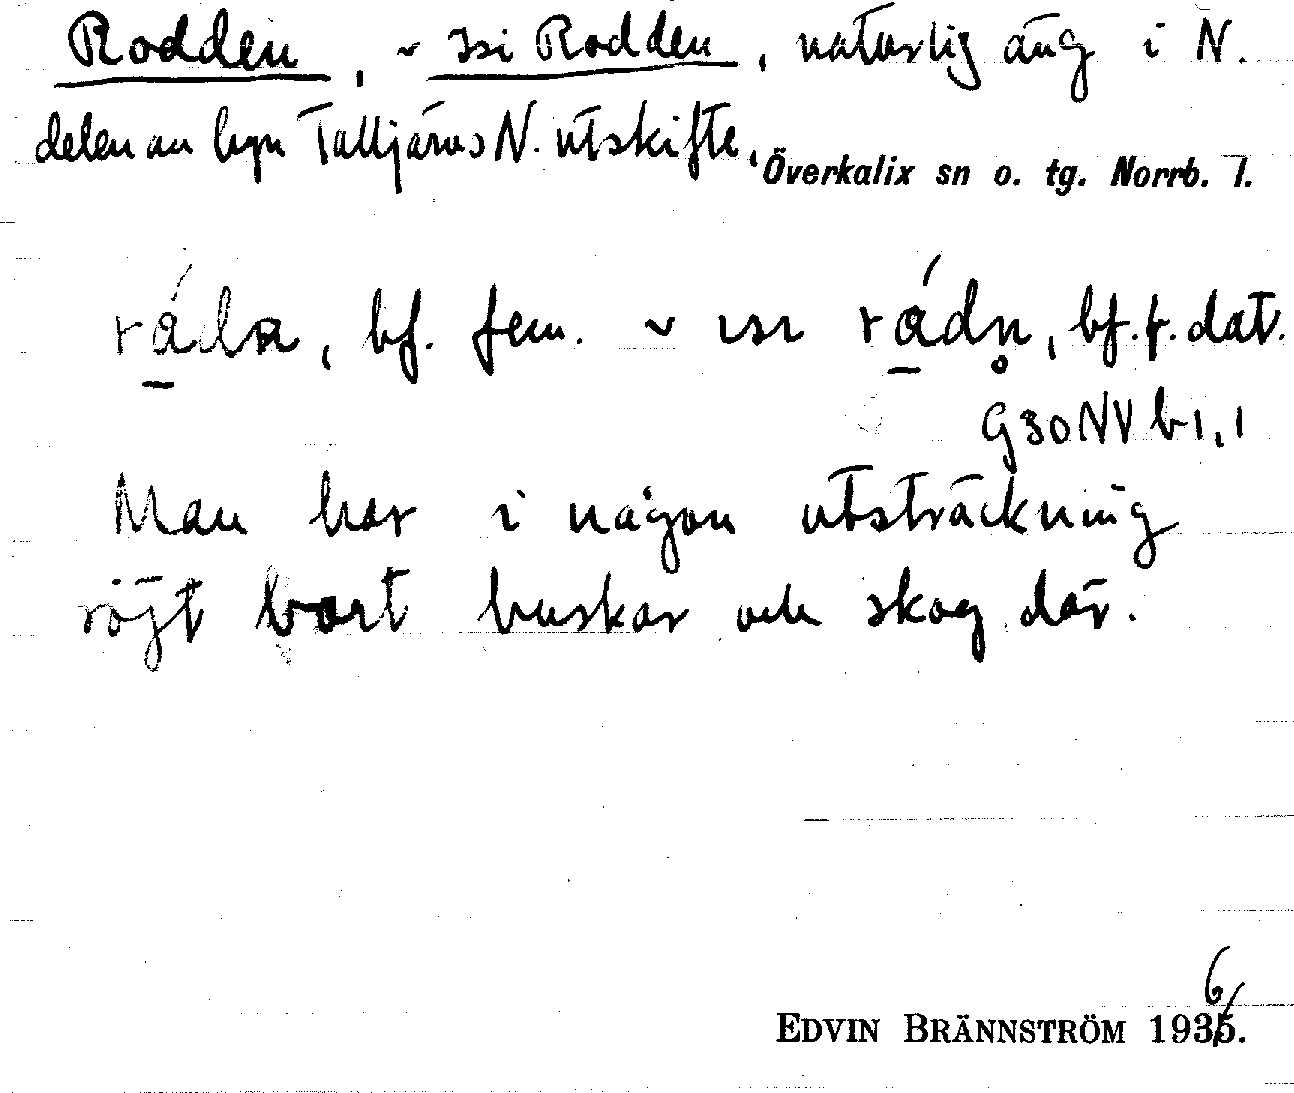 Rodden, ~ isi Rodden, naturlig äng i N.
delen av byn Talljärvs N. utskifte, Överkalix sn o. tg. Norrb. l.
råda, bf. fem. ~ isi rådn̥, bf. f. dat.
G30NV b1,1
Man har i någon utsträckning
röjt bort buskar och skog där.
EDVIN BRÄNNSTRÖM 1936.